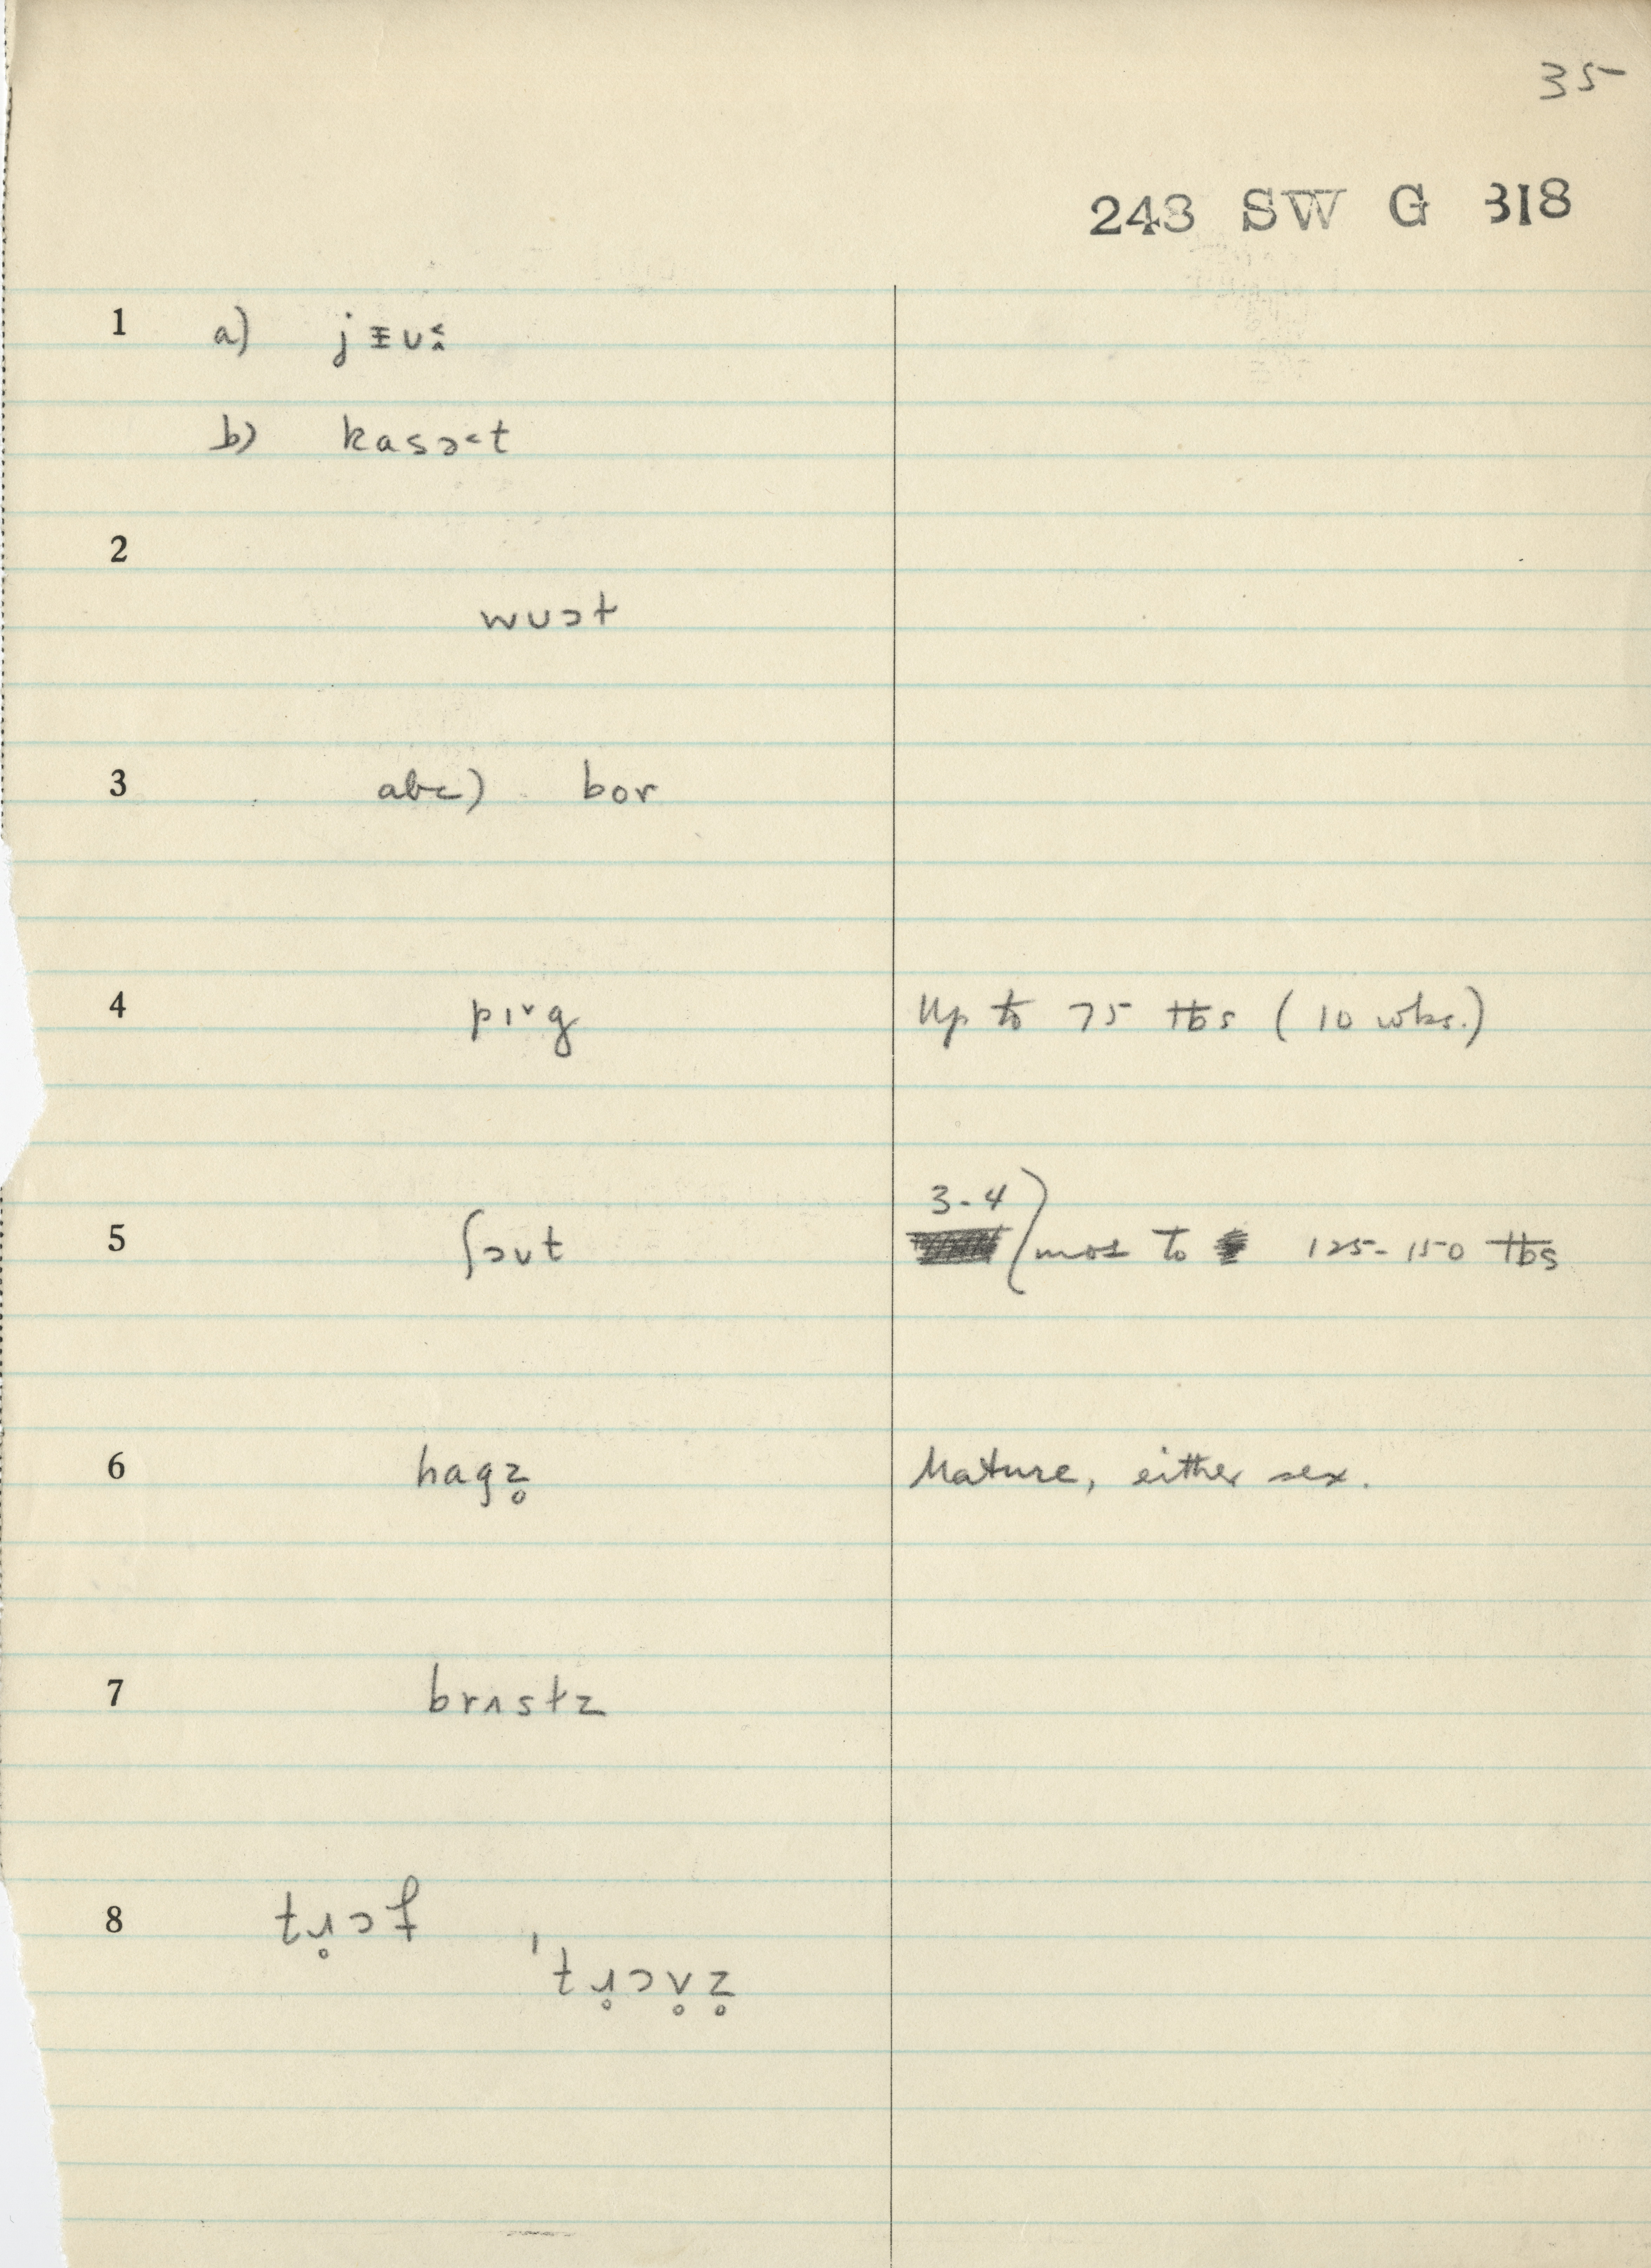 35
243 SW G 318
1 a) jᵻuː
b) kasɔ˂t
2
wuɔt
3 abc) bor
4 pɪ˅g Up to 75 lbs (10 wks.)
3-4
5 ʃɔʊt mos to 125-150 lbs
6 hagz̥ Mature, either sex.
7 brɪʌstz
8